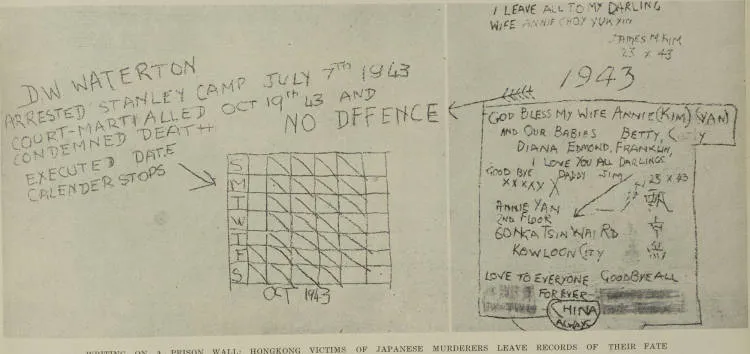 DW WATERTON
ARRESTED STANLEY CAMP JULY 7TH 1943
COURT-MARTIALLED OCT 19th 43 AND
CONDEMNED DEATH
NO DFFENCE
EXECUTED DATE
CALENDER STOPS
S
M
T
W
T
F
S
OCT 1943
I LEAVE ALL TO MY DARLING
WIFE ANNIE CHOY YUK YIN
JAMES M KIM
23 X 43
1943
GOD BLESS MY WIFE ANNIE (KIM) (YAN)
AND OUR BABIES BETTY,
DIANA EDMOND, FRANKLIN,
I LOVE YOU ALL DARLINGS
GOOD BYE DADDY JIM
XXXXX X
23 X 43
ANNIE YAN
2ND FLOOR
TSIN WAI RD
KOWLOON CITY
LOVE TO EVERYONE GOODBYE ALL
FOR EVER
CHINA
ALWAYS
WRITING ON A PRISON WALL: HONGKONG VICTIMS OF JAPANESE MURDERERS LEAVE RECORDS OF THEIR FATE